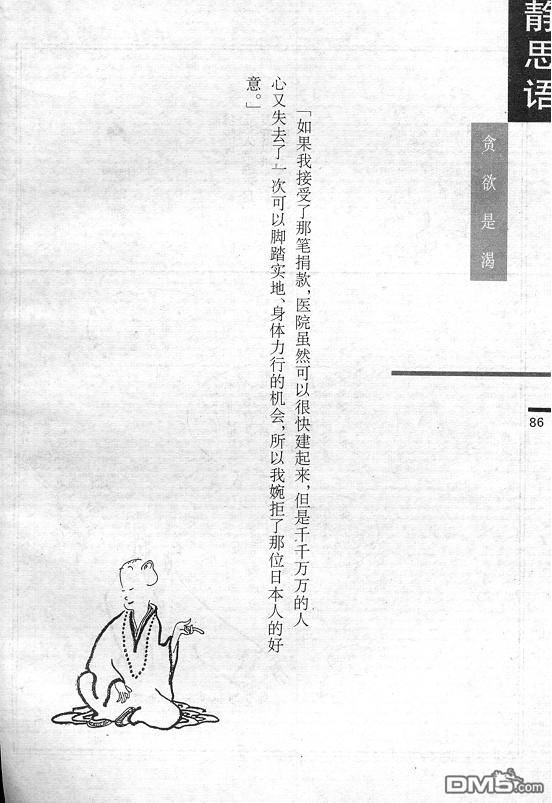 静思语
贪欲是渴
86
「如果我接受了那笔捐款，医院虽然可以很快建起来，但是千千万万的人
心又失去了一次可以脚踏实地、身体力行的机会，所以我婉拒了那位日本人的好
意。」
DM5.com